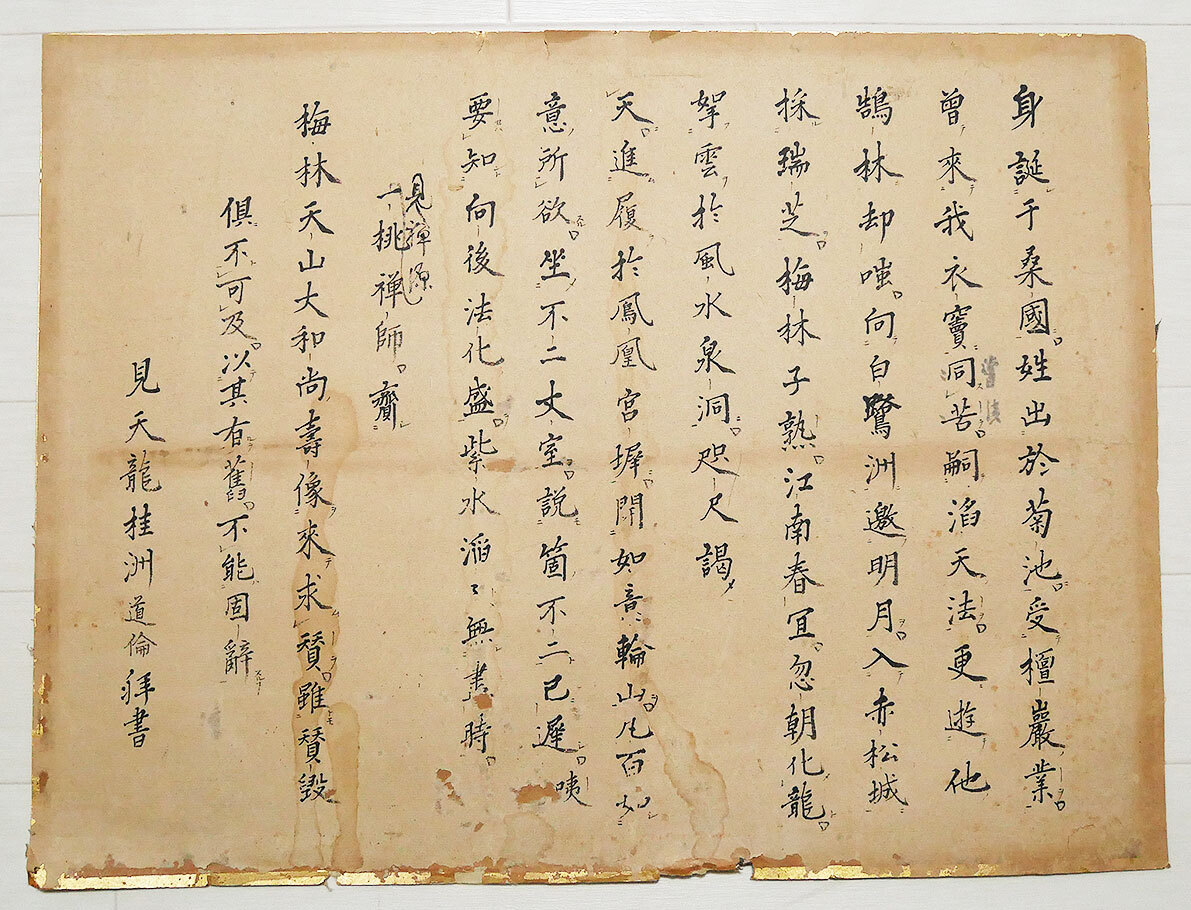 身誕于桑國姓出於菊池受檀巖業
曾來我衣寶同苦嗣滔天法更遊他
鵠林却嗤向白鷺洲邀明月入赤松城
採瑞芝梅林子熟江南春宜忽朝化龍
拏雲於風水泉洞咫尺謁
天進履於鳳凰宮墀閑如意輪山凡百如
意所欲坐不二丈室説箇不二已遲咦
要知向後法化盛紫水滔々無盡時
見禅源
一桃禅師齎
梅林天山大和尚壽像來求賛雖賛毀
俱不可及以其有舊不能固辭
見天龍桂洲道倫拜書